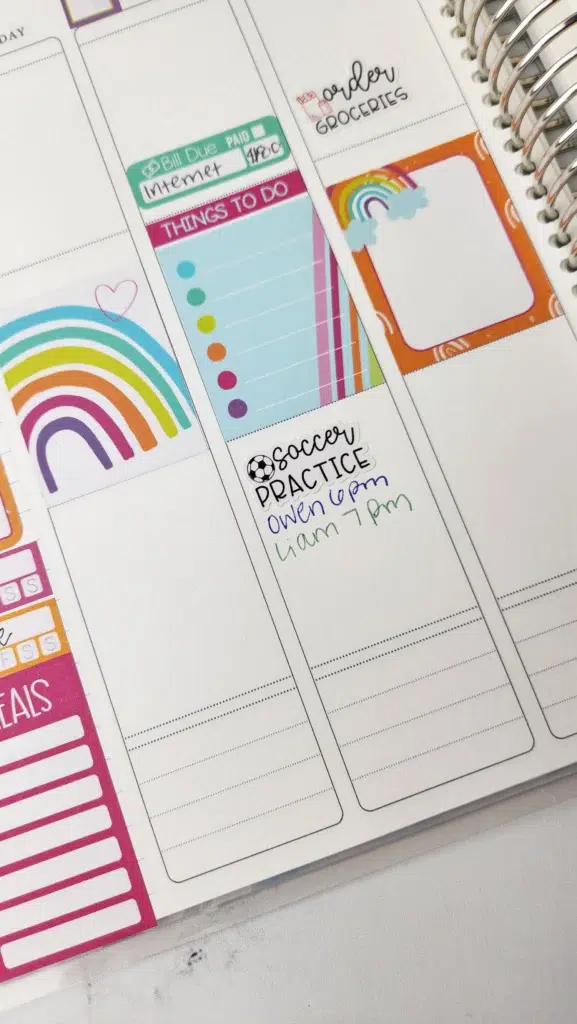 DAY
order
GROCERIES
Bill Due PAID
Internet
THINGS TO DO
soccer
PRACTICE
owen 6pm
Liam 7pm
S S
F S S
EALS